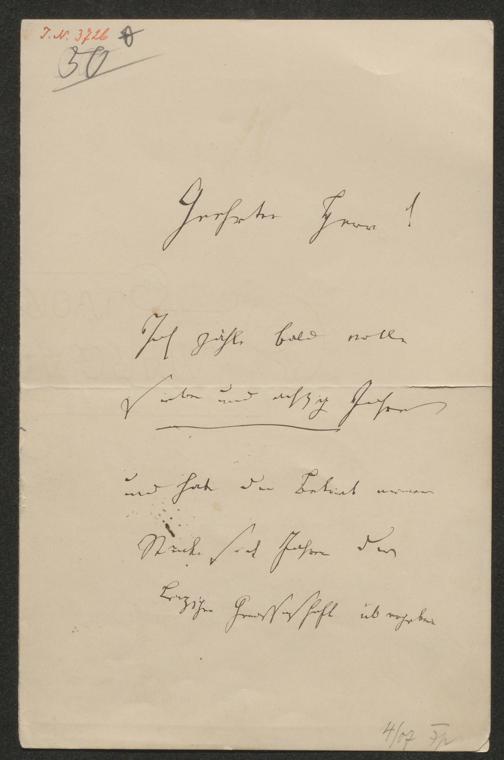 I. N. 3726
50
Geehrter Herr!
Ich zähle bald volle
sieben und achtzig Jahre
und habe den Betrieb meiner
Stücke seit Jahren der
Leipziger Genossenschaft übergeben
4/07